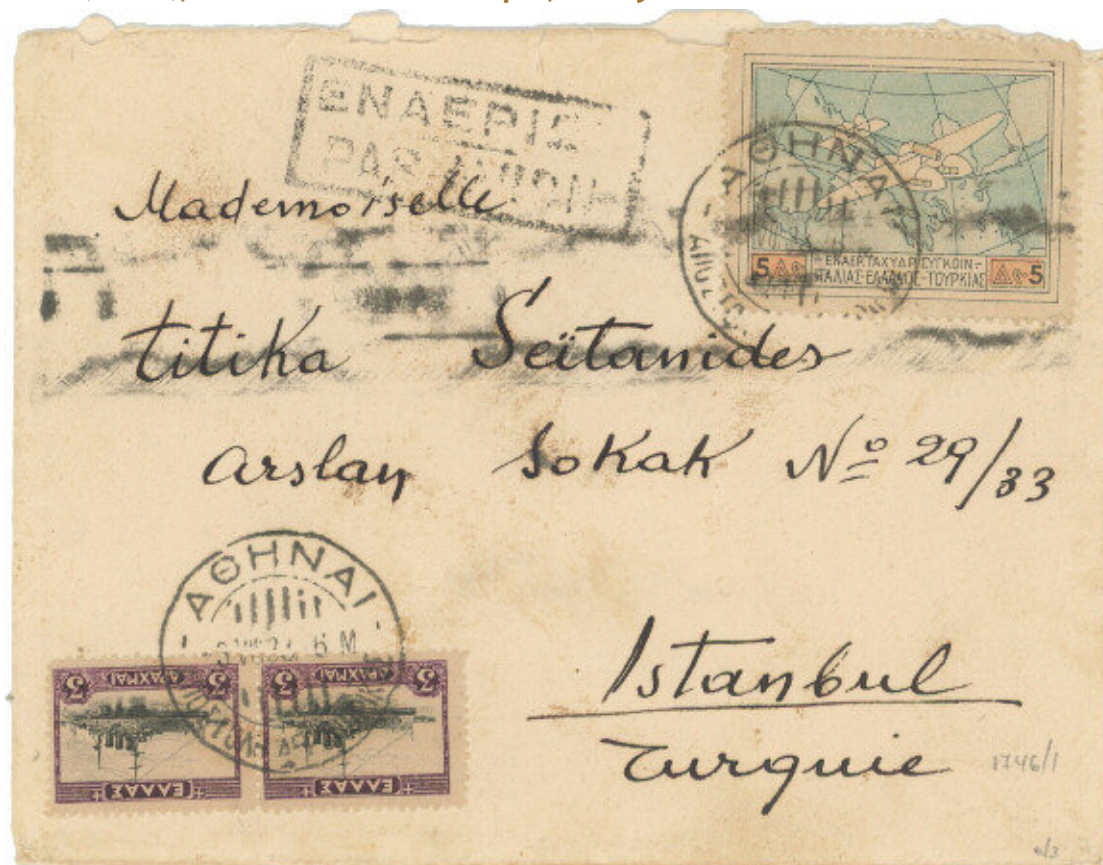 ΕΝΑΕΡΙΩΣ
PAR AVION
ΑΘΗΝΑΙ
5 Δρ. Δρ. 5
ΕΝΑΕΡ. ΤΑΧΥΔΡ. ΣΥΓΚΟΙΝ.
ΙΤΑΛΙΑΣ-ΕΛΛΑΔΟΣ-ΤΟΥΡΚΙΑΣ
Mademoiselle
Titika Seïtanides
Arslan Sokak Nº 29/33
ΑΘΗΝΑΙ
3 ΔΡΑΧΜΑΙ 3
3 ΔΡΑΧΜΑΙ 3
ΕΛΛΑΣ
ΕΛΛΑΣ
Istanbul
Turquie
1746/1